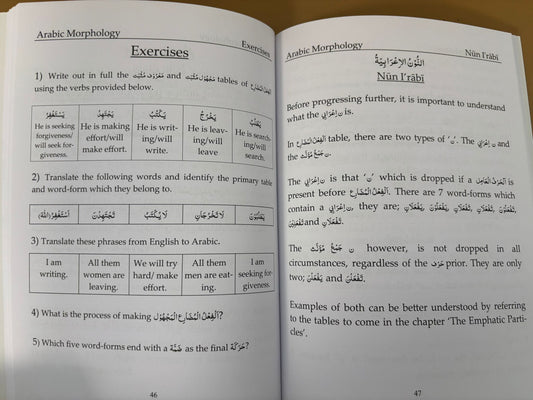 Arabic Morphology Exercises
Exercises
1) Write out in full the مَعْرُوْف مُثْبَت and مَجْهُوْل مُثْبَت tables of اَلْفِعْلُ الْمُضَارِع
using the verbs provided below.
يَسْتَغْفِرُ يَجْتَهِدُ يَكْتُبُ يَخْرُجُ يَبْحَثُ
He is seeking forgiveness/ will seek forgiveness. He is making effort/will make effort. He is writing/will write. He is leaving/will leave He is searching/will search.
2) Translate the following words and identify the primary table
and word-form which they belong to.
أَسْتَغْفِرُ (الله) تَجْتَهِدْنَ لَا يُكْتَبُ لَا تَخْرُجَانِ
3) Translate these phrases from English to Arabic.
I am writing. All them women are leaving. We will try hard/ make effort. All them men are eating. I am seeking forgiveness.
4) What is the process of making اَلْفِعْلُ الْمُضَارِع الْمَجْهُوْل?
5) Which five word-forms end with a ضَمَّة as the final حَرَكَة?
46
Arabic Morphology Nūn I'rābī
اَلنُّوْنُ الْاِعْرَابِيَةُ
Nūn I'rābī
Before progressing further, it is important to understand
what the ن اِعْرَابِي is.
In اَلْفِعْلُ الْمُضَارِع table, there are two types of 'ن'. The ن اِعْرَابِي and
the ن جَمْعْ مُؤَنَّث.
The ن اِعْرَابِي is that 'ن' which is dropped if a اَلْحَرْفُ الْعَامِل is
present before اَلْفِعْلُ الْمُضَارِع. There are 7 word-forms which
contain a ن اِعْرَابِي, they are; يَفْعَلَانِ, يَفْعَلُوْنَ, تَفْعَلَانِ, تَفْعَلَانِ, تَفْعَلُوْنَ,
تَفْعَلِيْنَ and تَفْعَلَانِ.
The ن جَمْعْ مُؤَنَّث however, is not dropped in all
circumstances, regardless of the حَرْف prior. They are only
two; يَفْعَلْنَ and تَفْعَلْنَ.
Examples of both can be better understood by referring
to the tables to come in the chapter 'The Emphatic Parti-
cles'.
47